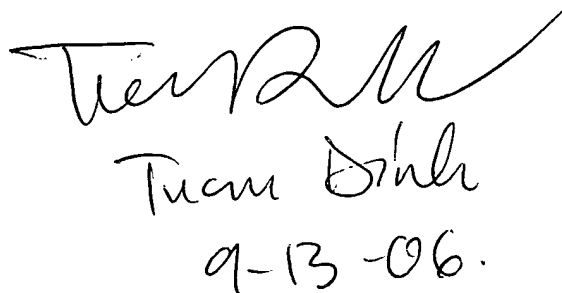 Tuan Đình
9-13-06.